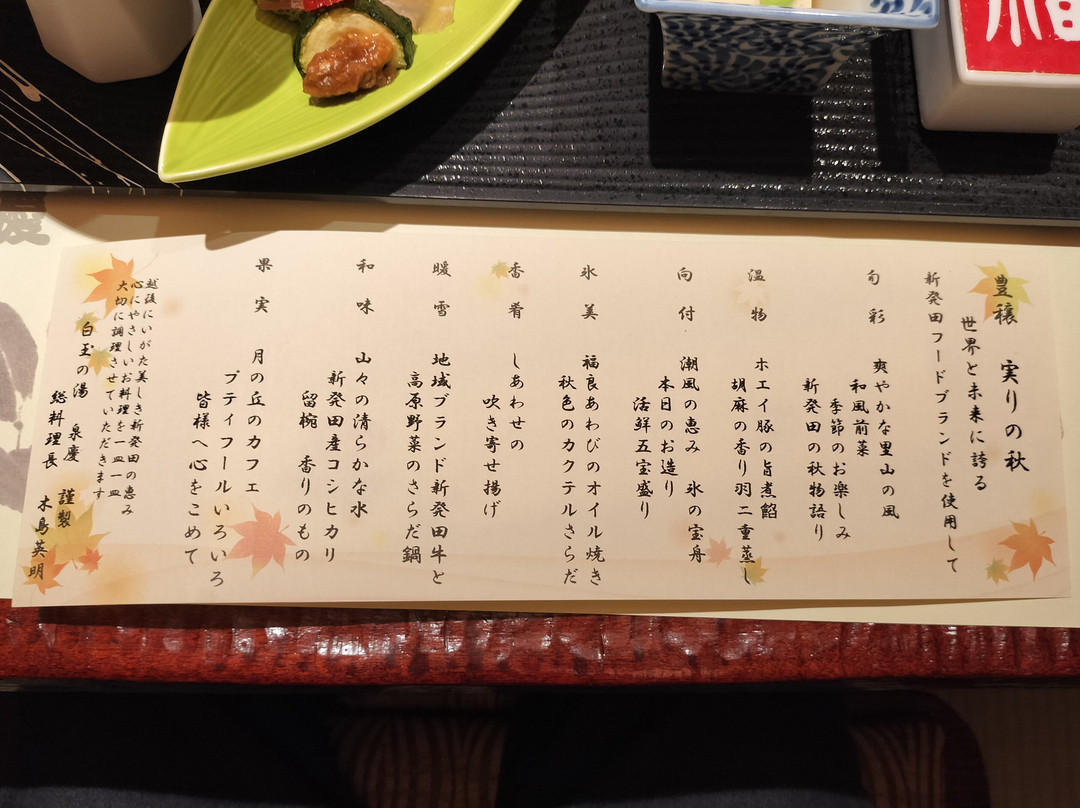 豊穣 実りの秋
世界と未来に誇る
新発田フードブランドを使用して
旬彩 爽やかな里山の風
和風前菜
季節のお楽しみ
新発田の秋物語り
温物 ホエイ豚の旨煮餡
胡麻の香り羽二重蒸し
向付 潮風の恵み 氷の宝舟
本日のお造り
活鮮五宝盛り
氷美 福良あわびのオイル焼き
秋色のカクテルさらだ
香肴 しあわせの
吹き寄せ揚げ
暖雪 地域ブランド新発田牛と
高原野菜のさらだ鍋
和味 山々の清らかな水
新発田産コシヒカリ
留椀 香りのもの
果実 月の丘のカフェ
プティフールいろいろ
皆様へ心をこめて
越後にいがた美しき新発田の恵み
心にやさしいお料理を一皿一皿
大切に調理させていただきます
白玉の湯 泉慶 謹製
総料理長 木島英明
慶
福